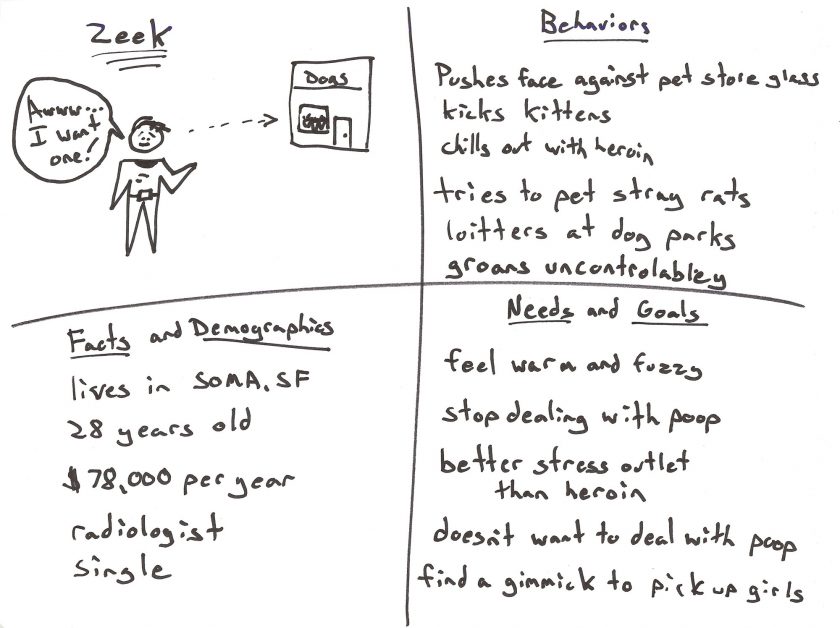 Zeek
Awww...
I want
one!
Dogs
Behaviors
Pushes face against pet store glass
kicks kittens
chills out with heroin
tries to pet stray rats
loitters at dog parks
groans uncontrolablizy
Facts and Demographics
lives in SOMA, SF
28 years old
$78,000 per year
radiologist
single
Needs and Goals
feel warm and fuzzy
stop dealing with poop
better stress outlet
than heroin
doesn't want to deal with poop
find a gimmick to pick up girls